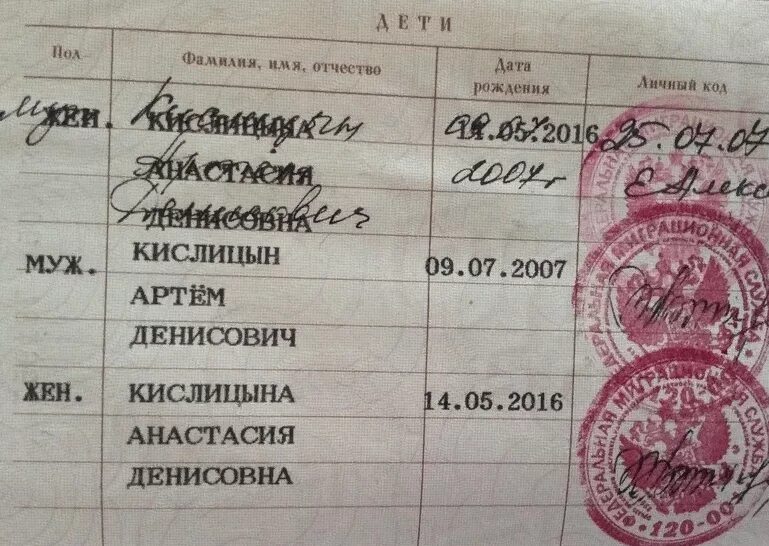 ДЕТИ
Пол Фамилия, имя, отчество Дата рождения Личный код
муж Кислицын 09.07. 25.07.07
ЖЕН. КИСЛИЦЫНА 14.05.2016
2007г Е Алекс
АНАСТАСИЯ
Денисович
ДЕНИСОВНА
МУЖ. КИСЛИЦЫН 09.07.2007
АРТЁМ
ДЕНИСОВИЧ
ЖЕН. КИСЛИЦЫНА 14.05.2016
АНАСТАСИЯ
ДЕНИСОВНА
ФЕДЕРАЛЬНАЯ МИГРАЦИОННАЯ СЛУЖБА
ФЕДЕРАЛЬНАЯ МИГРАЦИОННАЯ СЛУЖБА
120-00